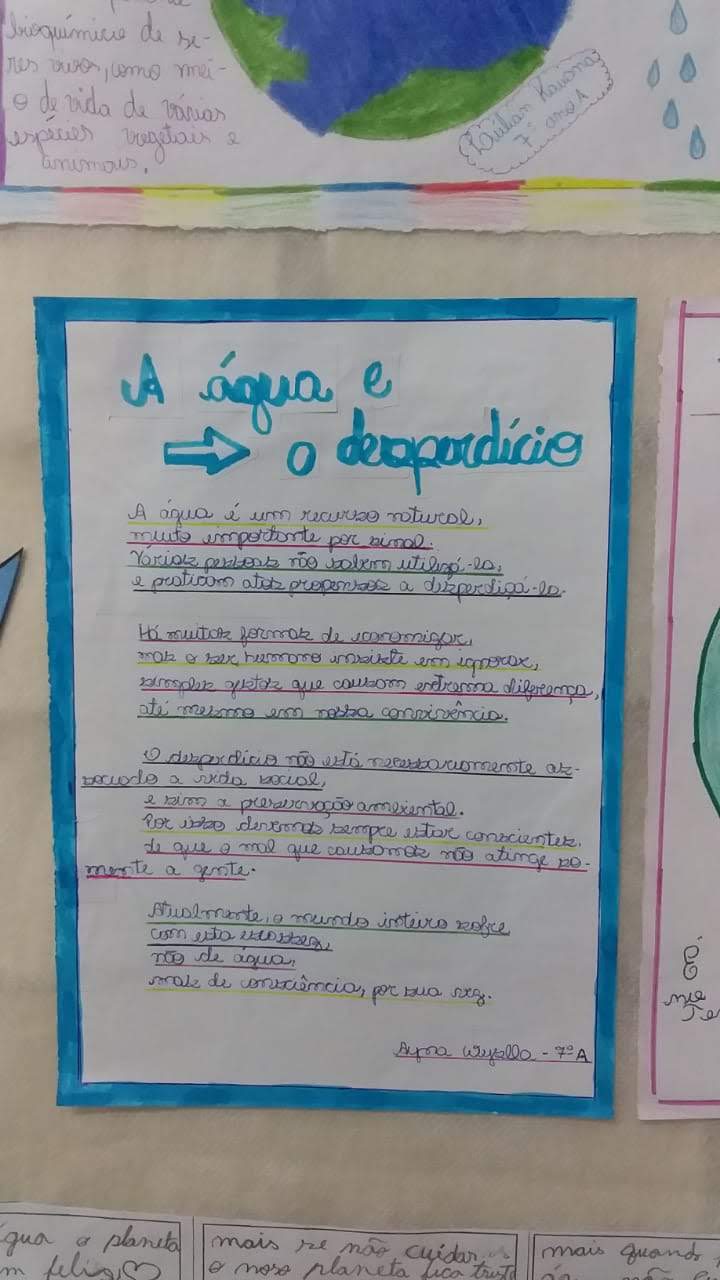 bioquímica de se-
res vivos, como mei-
o de vida de várias
espécies vegetais e
animais.
Kauana
7° ano A
A água e
o desperdício
A água é um recurso natural,
muito importante por sinal.
Várias pessoas não sabem utilizá-la,
e praticam atos propensos a disperdiçá-la.
Há muitas formas de economizar,
mas o ser humano insiste em ignorar,
simples gestos que causam extrema diferença,
até mesmo em nossa convivência.
O disperdício não está necessariamente as-
sociado a vida social,
e sim a preservação ambiental.
Por isso devemos sempre estar conscientes.
de que o mal que causamos não atinge so-
mente a gente.
Atualmente, o mundo inteiro sofre
com esta escassez,
não de água,
mas de consciência, por sua vez.
7º A
gua o planeta
m feliz
mais se não cuidar
o noso planeta fica trist
mais quando